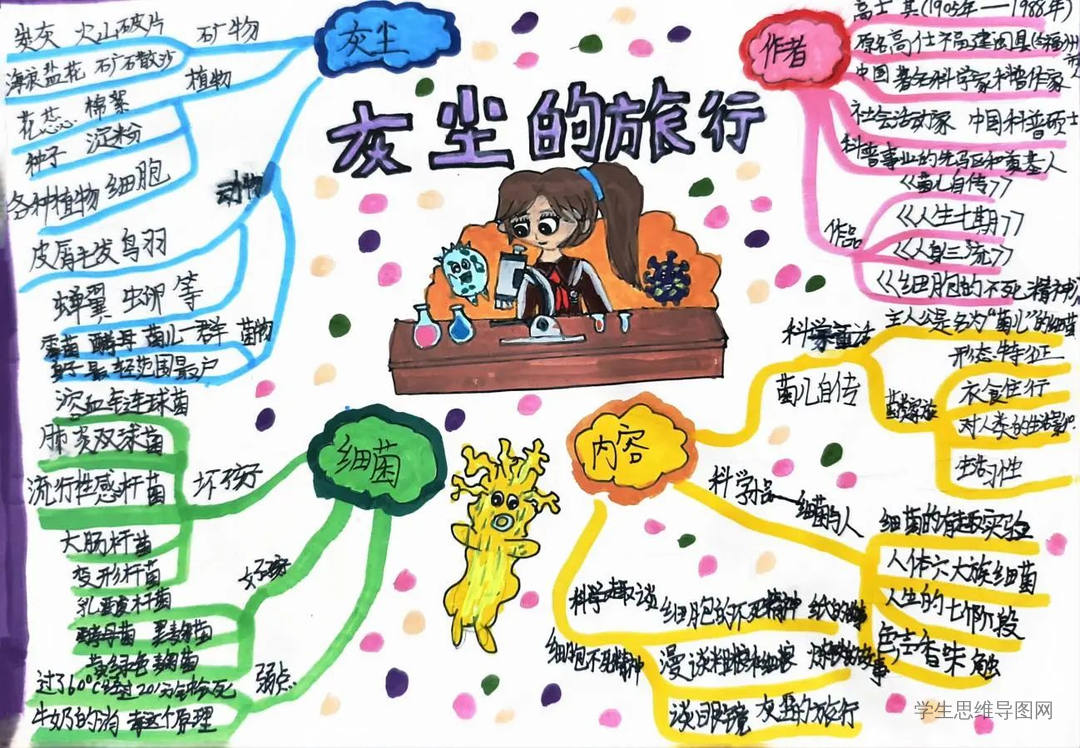 灰尘的旅行
灰尘
炭灰 火山破片 矿物
海浪盐花 石广石散沙
植物
花蕊 棉絮
种子 淀粉
各种植物细胞
动物
皮屑毛发鸟羽
蝉翼 虫卵 等
酵母 菌儿一群 菌物
作者
高士其(1905年——1988年)
原名高仕
中国著名科学家科普作家
社会活动家 中国科普硕士
科普事业的先马区和奠基人
作品
《菌儿自传》
《人生七期》
《人身三流》
《细胞的不死精神》
细菌
坏孩子
溶血链球菌
肺炎双球菌
流行性感冒杆菌
大肠杆菌
变形杆菌
好孩
乳酸杆菌
酵母菌
弱点
牛奶的消
内容
科学童话
菌儿自传
主人公是名为“菌儿”的细菌
形态特征
衣食住行
对人类的
科学小品
细菌与人
细菌的有趣实验
人体六大族细菌
人生的七个阶段
色 声 香 味 触
科学趣谈
细胞的不死精神
细胞不死精神
漫谈粗粮和细粮
谈眼镜 灰尘的旅行
学生思维导图网